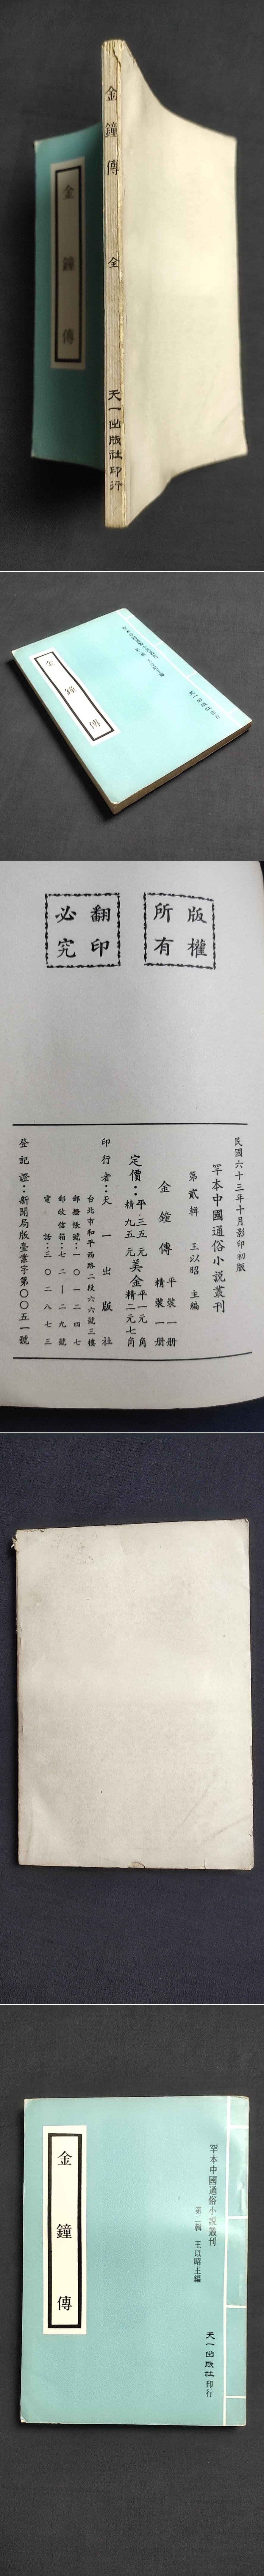 金鐘傳 全 天一出版社印行
金鐘傳
金鐘傳
天一出版社印行
版權所有
翻印必究
民國六十三年十月影印初版
罕本中國通俗小說叢刊
第貳輯 王以昭 主編
金鐘傳 平裝一册
精裝一册
定價：平三五元 美金平一元 角
精九五元 精二元七角
印行者：天一出版社
台北市和平西路二段六六號三樓
郵撥帳號：一〇一二四七
郵政信箱：七二—二九號
電話：三〇二八七三
登記證：新聞局版臺業字第〇〇五一號
罕本中國通俗小說叢刊
第二輯 王以昭主編
天一出版社印行
金鐘傳